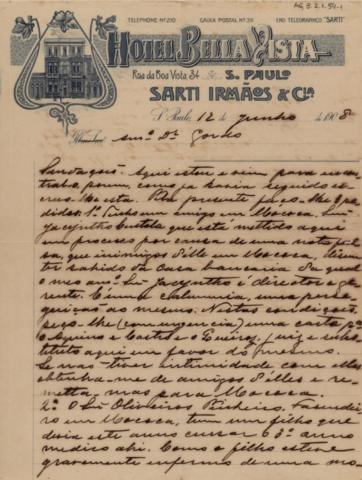 AG.3.2.1.54-1
TELEPHONE Nº 210 CAIXA POSTAL Nº 311 END. TELEGRAPHICO "SARTI"
HOTEL BELLA VISTA
Rua da Boa Vista 34 S. PAULO
SARTI IRMÃOS & Cia
S. Paulo, 12 de Junho de 1908
Exmo. Dr. Gordo
Saudações. Aqui estou e vim para
porem, como ja havia seguido es-
Pela presente faço-lhe 2 pe-
didos. 1º Tenho um amigo em Mococa, Snr.
Jacyntho que esta mettido aqui
um processo por causa de uma nota fal-
sa, que inimigos d'elle em Mococa,
ter sahido da casa bancaria da qual
o meu amº Snr Jacyntho é director e ge-
rente. É uma calumnia, uma perse-
guição ao mesmo. Nestas condições,
peço-lhe (com urgencia) uma carta pª
o Aquino e Castro e o juiz e subs-
tituto aqui em favor do mesmo.
Se não tiver intimidade com elles
obtenha-me de amigos d'elles e re-
metta-mas para Mococa.
2º O Snr Oliveiros Pinheiro, fazendei-
ro em Mococa, tem um filho que
devia este anno cursar o 3º anno
medico ahi. Como o filho esteve
gravemente enfermo de uma mo-